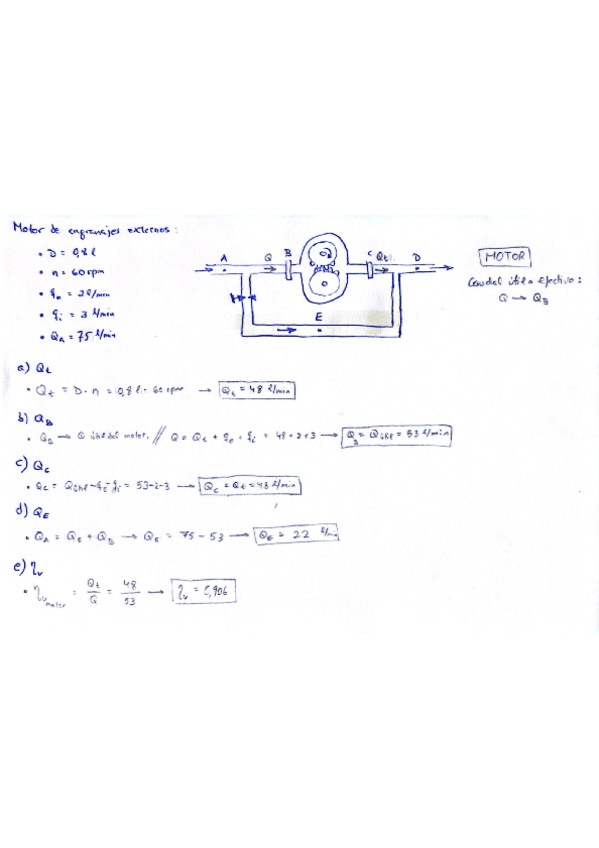 Motor de engranajes externos:
• D = 0,8 l
• n = 60 rpm
• qe = 2 l/min
• qi = 3 l/min
• QA = 75 l/min
A Q B C Qt D
E
MOTOR
Caudal útil o efectivo:
Q → QB
a) Qt
• Qt = D · n = 0,8 l · 60 rpm → Qt = 48 l/min
b) QB
• QB → Q útil del motor // Q = Qt + qe + qi = 48 + 2 + 3 → QB = Qútil = 53 l/min
c) QC
• QC = Qútil - qe - qi = 53-2-3 → QC = Qt = 48 l/min
d) QE
• QA = QE + QB → QE = 75 - 53 → QE = 22 l/min
e) ηv
• ηv motor = Qt/Q = 48/53 → ηv = 0,906